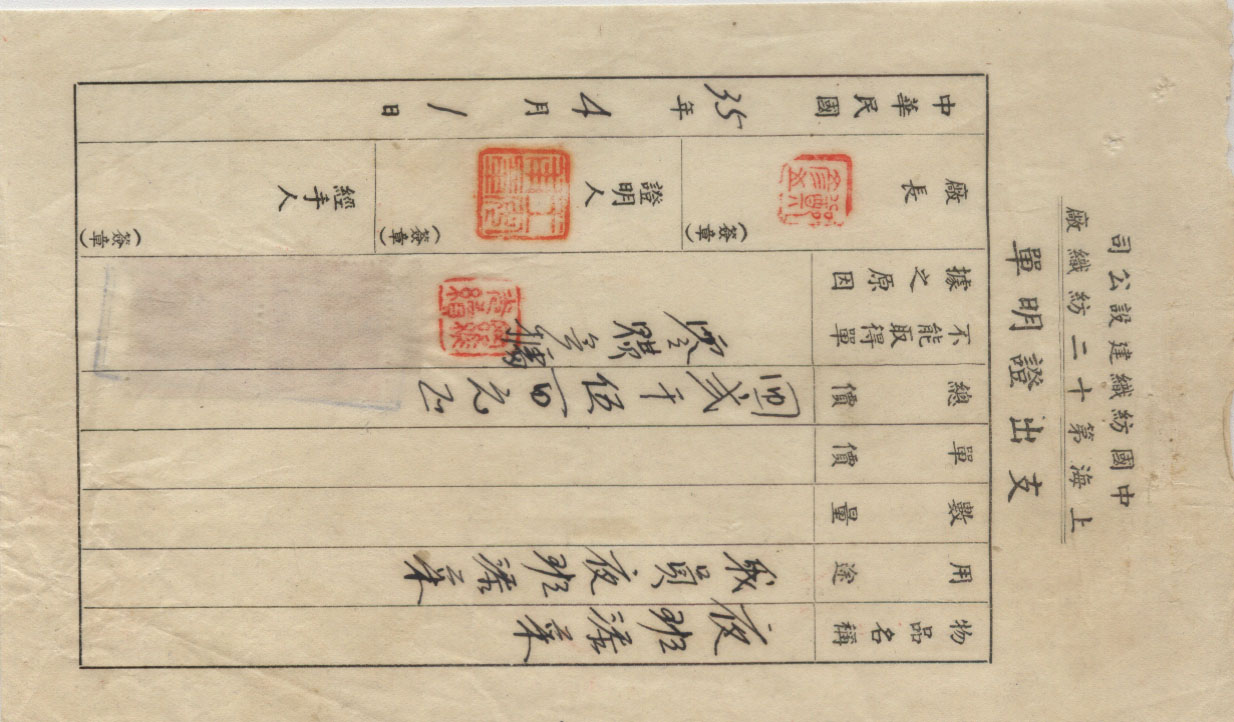 中國紡織建設公司
上海第十二紡織廠
支出證明單
物品名稱 夜班菜
用途 職員夜班菜
數量
單價
總價 弍千伍百元正
不能取得單據之原因 零購無據
廠長 (簽章)
證明人 (簽章)
經手人 (簽章)
中華民國35年4月1日